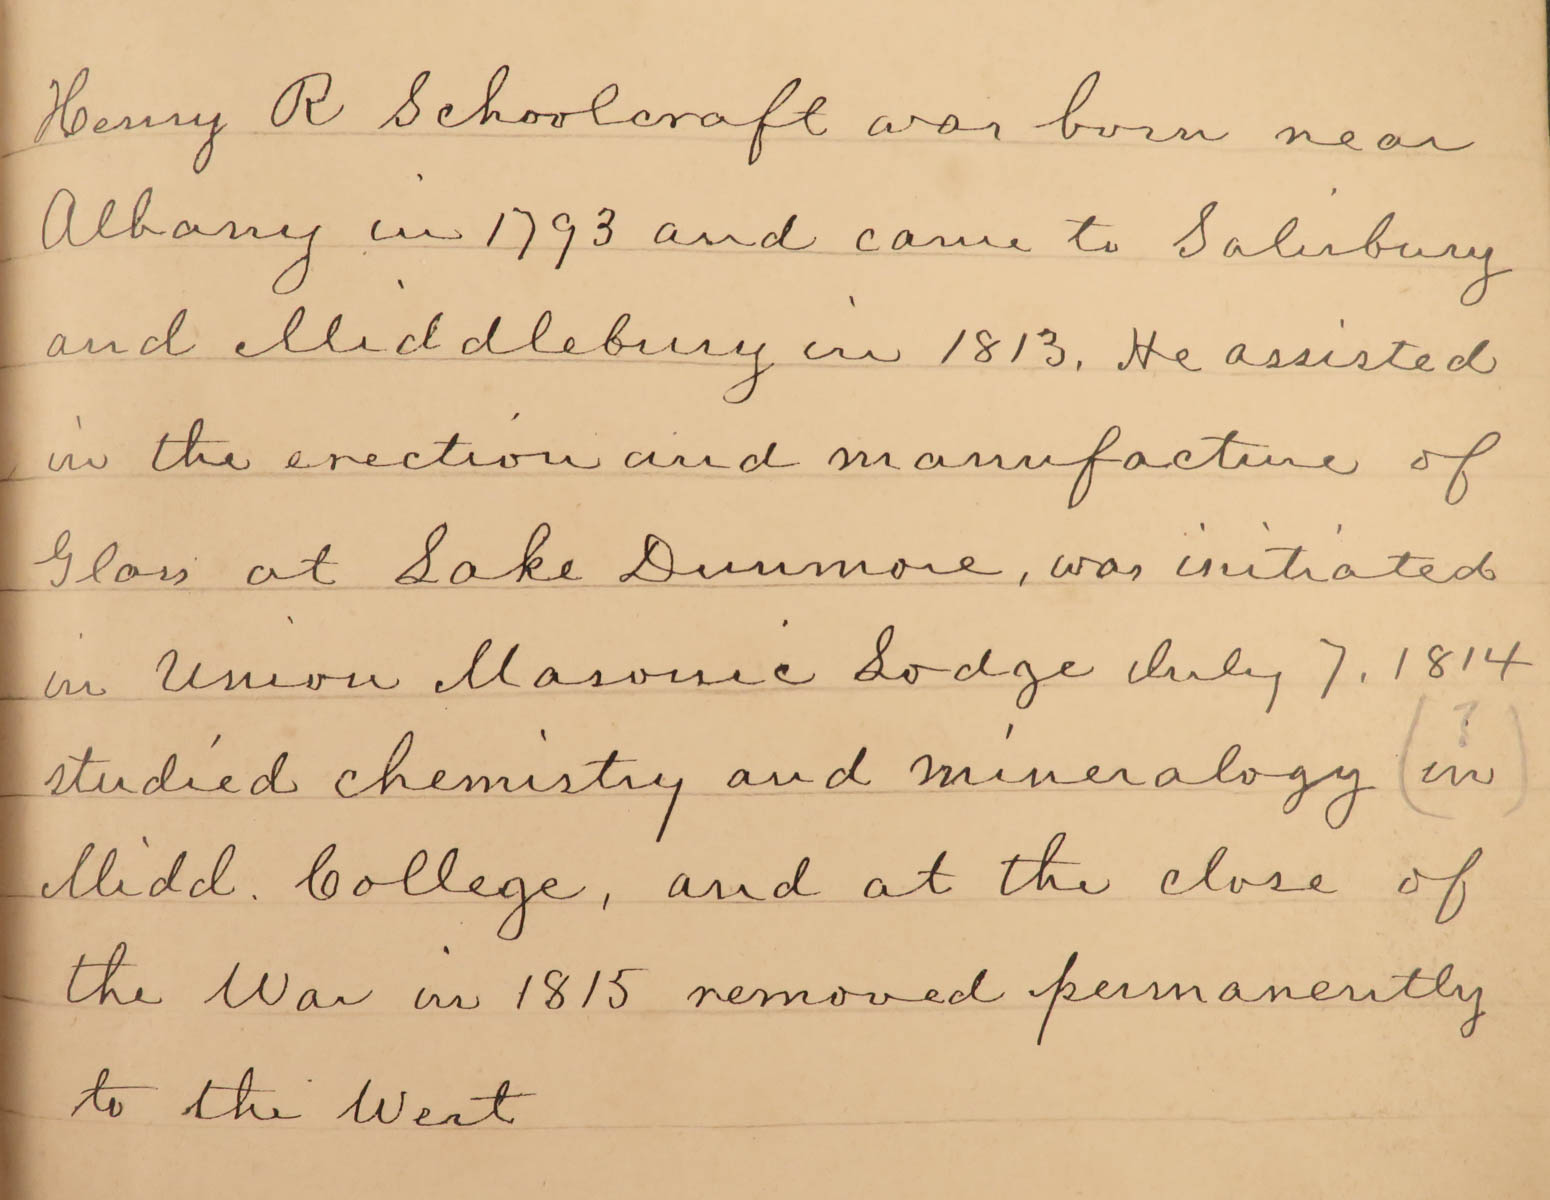 Henry R Schoolcraft was born near
Albany in 1793 and came to Salisbury
and Middlebury in 1813. He assisted
in the erection and manufacture of
Glass at Lake Dunmore, was initiated
in Union Masonic Lodge July 7, 1814
studied chemistry and mineralogy (in ?)
Midd. College, and at the close of
the War in 1815 removed permanently
to the West